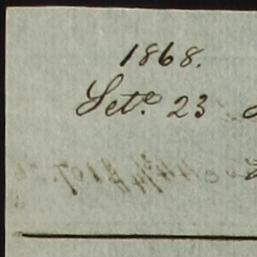 1868.
Sete. 23